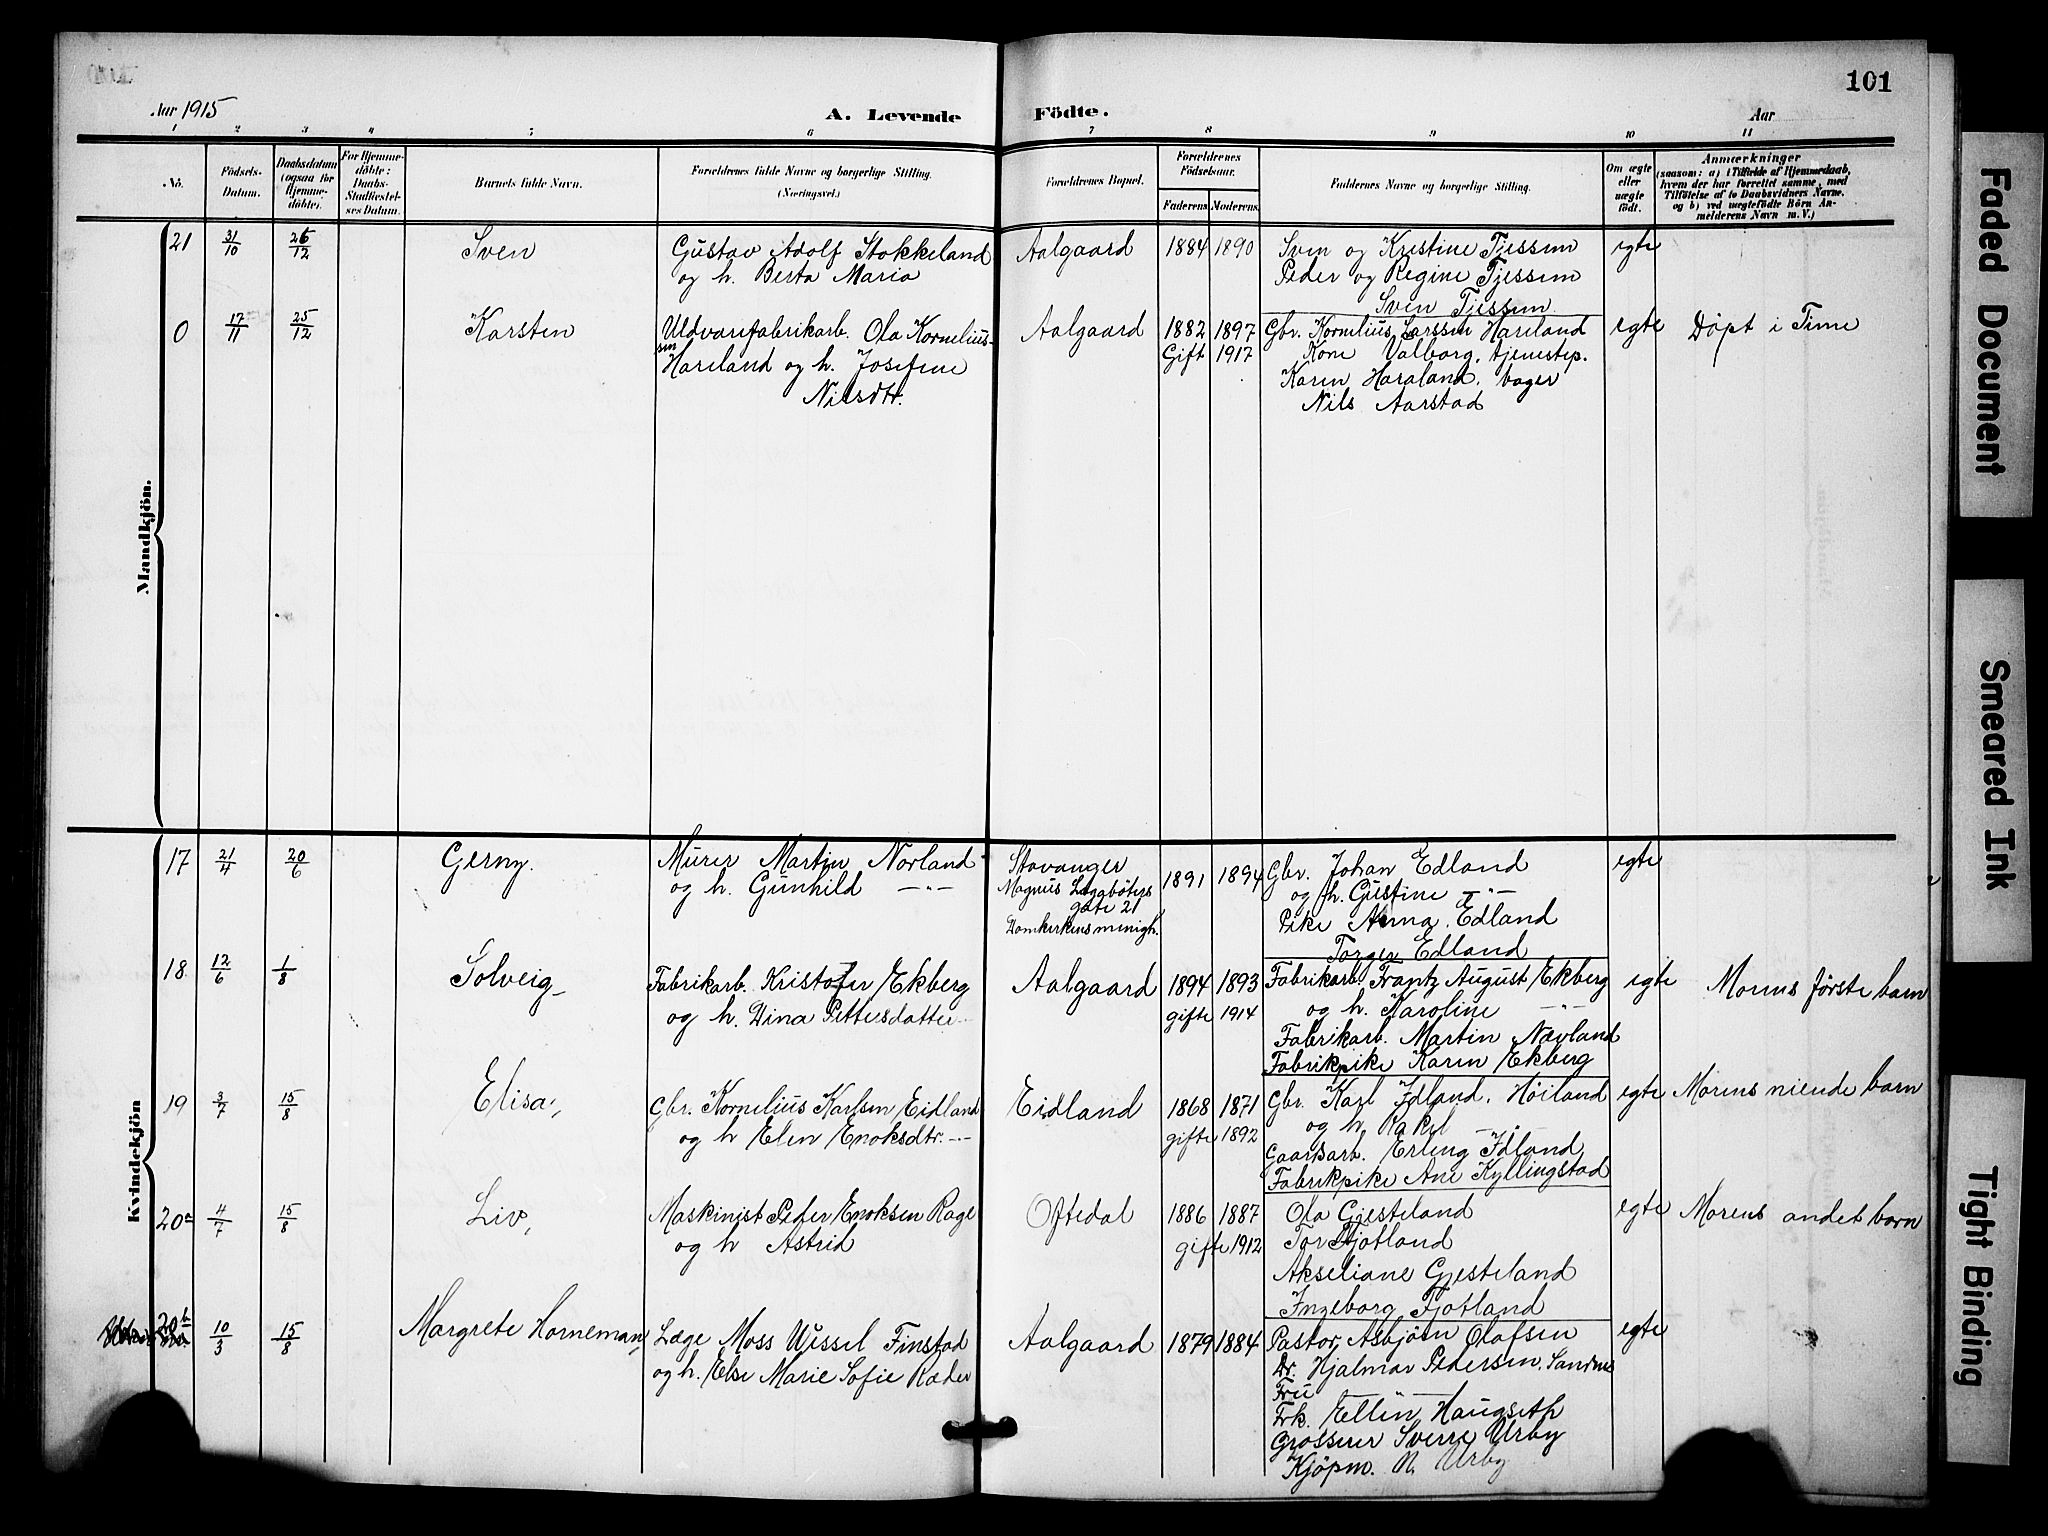 101
Aar 1915
A. Levende Födte.
Aar
1 2 3 4 5 6 7 8 9 10 11
No.
Födsels-
Datum.
Daabsdatum
(ogsaa for
Hjemme-
döbte).
For Hjemme-
döbte:
Daabs-
Stadfæstel-
ses Datum.
Barnets fulde Navn.
Forældrenes fulde Navne og borgerlige Stilling.
(Næringsvei.)
Forældrenes Bopæl.
Forældrenes
Födselsaar.
Faderens Moderens
Faddernes Navne og borgerlige Stilling.
Om ægte
eller
uægte
födt.
Anmærkninger
(saasom: a) i Tilfælde af Hjemmedaab,
hvem der har forrettet samme, med
Tilföielse af to Daabsvidners Navne.
og b) ved uægtefödte Börn An-
melderens Navn m. V.)
Mandkjön.
21 31/10 26/12 Sven
Gustav Adolf Stokkeland
og h. Berta Maria
Aalgaard 1884 1890
Sven og Kristine Tjessem
Peder og Regine Tjessem
Sven Tjessem
egte
0 17/11 25/12 Karsten
Uldvarefabrikarb. Ola Kornelius-
sen
Hareland og h. Josefine
Nilsdtr.
Aalgaard 1882 1897
Gift 1917
Gbr. Kornelius Larssen Hareland
Kone Valborg, tjenestep.
Karen Haraland, bager
Nils Aarstad
egte Døpt i Time
Kvindekjön
17 21/4 20/6 Gerny.
Murer Martin Norland
og h. Gunhild —"—
Stavanger
Magnus Lagabøters
gate 21
Domkirkens menigh.
1891 1894
Gbr. Johan Edland
og h. Gustine —"—
Pike Anna Edland
Torger Edland
egte
18 12/6 1/8 Solveig
Fabrikarb. Kristofer Ekberg
og h. Dina Pettersdatter
Aalgaard 1894 1893
gifte 1914
Fabrikarb. Frantz August Ekberg
og h. Karoline —"—
Fabrikarb. Martin Nævland
Fabrikpike Karen Ekberg
egte Morens første barn
19 3/7 15/8 Elisa,
Gbr. Kornelius Karlsen Eidland
og h Elen Enoksdtr.
Eidland 1868 1871
gifte 1892
Gbr. Karl Idland, Høiland
og h. Rakel
Gaardsarb. Erling Idland
Fabrikpike Ane Kyllingstad
egte Morens niende barn
20a 4/7 15/8 Liv,
Maskinist Peder Enoksen Rage
og h Astrid
Oftedal 1886 1887
gifte 1912
Ola Gjesteland
Tor Fjotland
Akseliane Gjesteland
Ingeborg Fjotland
egte Morens andet barn
20b 10/3 15/8 Margrete Horneman,
Læge Moss Wessel Finstad
og h. Else Marie Sofie Ræder
Aalgaard 1879 1884
Pastor Asbjørn Olafsen
Dr. Hjalmar Pedersen, Sandnes
Fru —"—
Frk. Ellen Haugseth
Grosserer Sverre Urby
Kjøpm. N. Urby
egte
Faded Document
Smeared Ink
Tight Binding